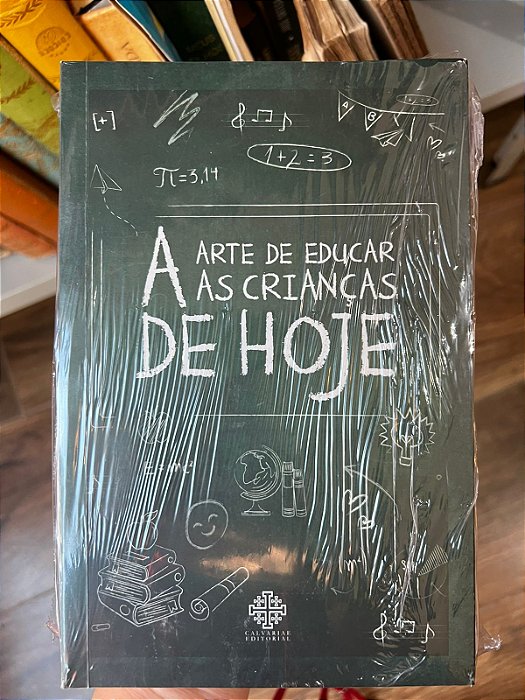 [+]
A B
1+2=3
π=3,14
A ARTE DE EDUCAR
AS CRIANÇAS
DE HOJE
E=mc²
CALVARIAE
EDITORIAL